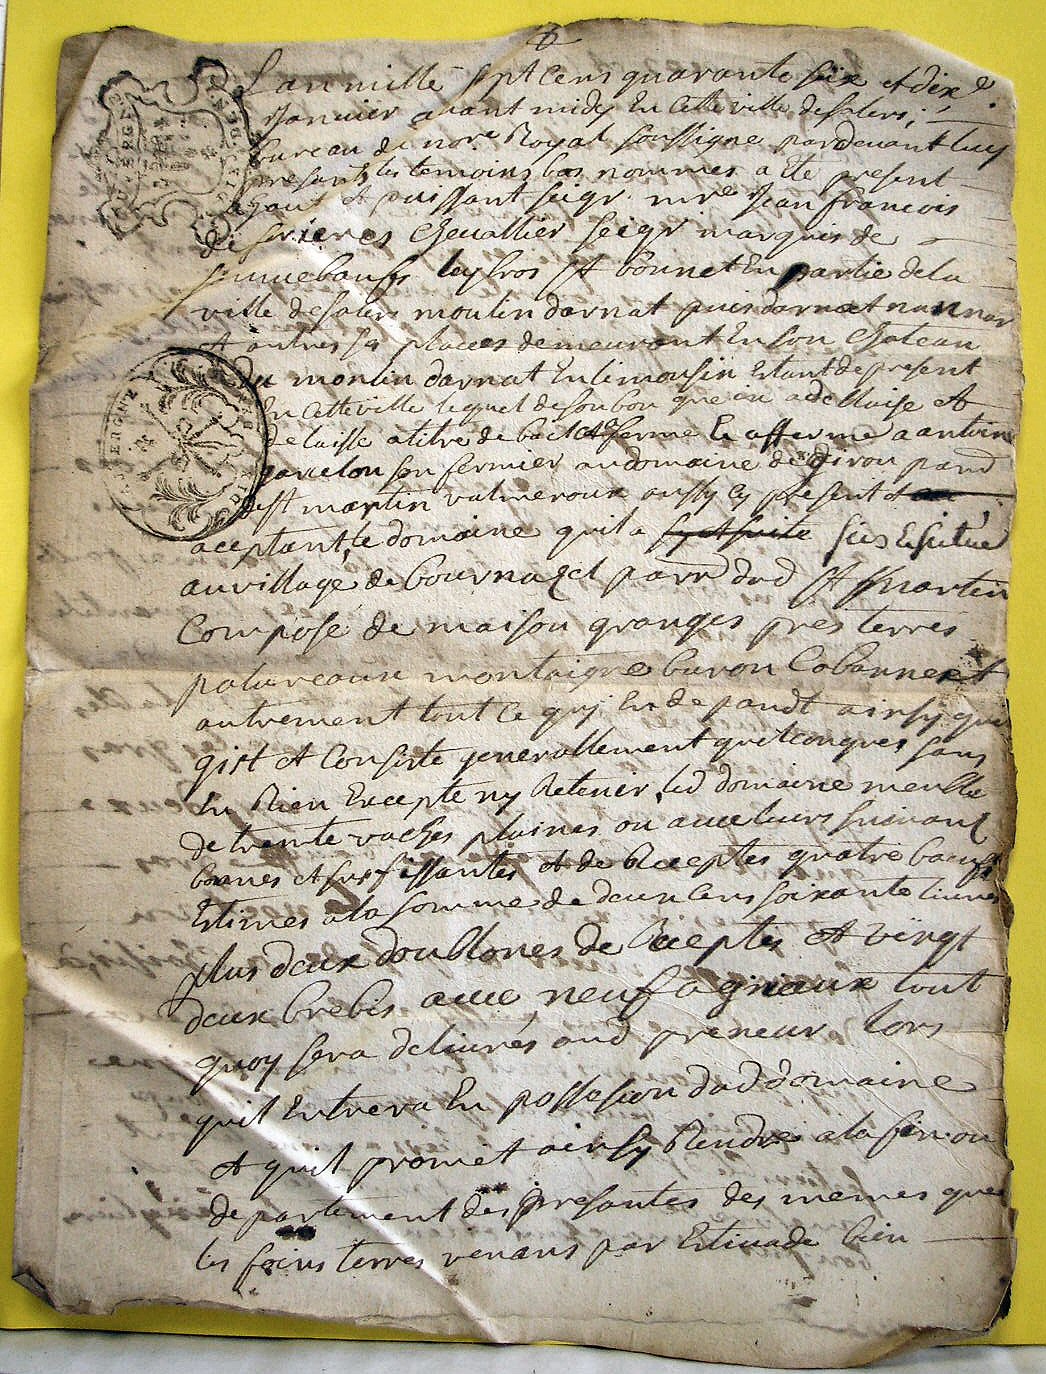 L'an mille sept cens quarante six et dix.e
Janvier avant midy En cette ville desalers,
bureau du nore Royal soussigne pardevant luy
presants les temoins bas nommes a ete present
et puissant seigr mre Jean francois
de scrieres Chevallier seigr marquis de
leybros St bonnet En partie dela
ville desalers moulin darnat puis darnat
Et autres ses places demeurant En son Chateau
du moulin darnat En limousin Estant de present
En cette ville lequel de son bon gre a delaise Et
delaisse a titre de bail a ferme Et afferme a antoine
garcelon son fermier au domaine de girou parr
de st martin valmeroux aussy Cy present et
aceptant, le domaine quil a sis Et situé
au village de bournazel parr dud St martin
Composé de maison granges pres terres
patureaux montaigne buron Cabanne et
autrement tout ce quy En depandt ainsy que
gist et Consiste generallement quelconques sans
En Rien Excepte ny Retenir, led domaine meuble
de trente vaches plaines ou avec leurs suivans
bonnes et suffissantes et de Receptes quatre boeufs
Estimes a la somme de deux Cens soixante livres
plus deux doublones de Receptes et vingt
deux brebis avec neuf agniaux tout
quoy sera delivrés aud preneur lors
quil Entrera En possession dud domaine
Et quil promet ainsy Rendre a la fin ou
departement des presantes des memes que
les foins terres venans par Estivade bien